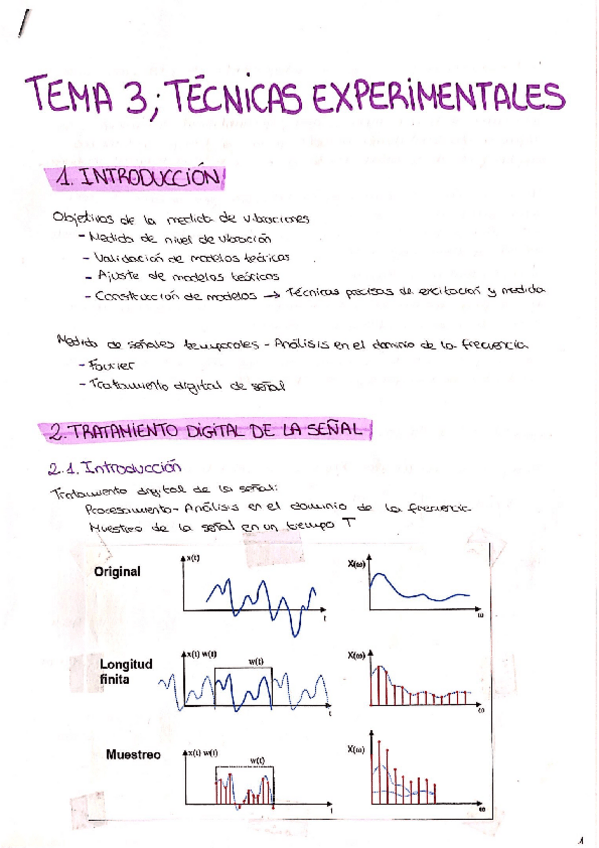 TEMA 3; TÉCNICAS EXPERIMENTALES
1. INTRODUCCIÓN
Objetivos de la medida de vibraciones
- Medida de nivel de vibración
- Validación de modelos teóricos
- Ajuste de modelos teóricos
- Construcción de modelos → Técnicas precisas de excitación y medida
Medida de señales temporales - Análisis en el dominio de la frecuencia
- Fourier
- Tratamiento digital de señal
2. TRATAMIENTO DIGITAL DE LA SEÑAL
2.1. Introducción
Tratamiento digital de la señal:
Procesamiento - Análisis en el dominio de la frecuencia
Muestreo de la señal en un tiempo T
Original
x(t)
t
X(ω)
ω
Longitud
finita
x(t) w(t)
w(t)
t
X(ω)
ω
Muestreo
x(t) w(t)
w(t)
t
X(ω)
ω
1